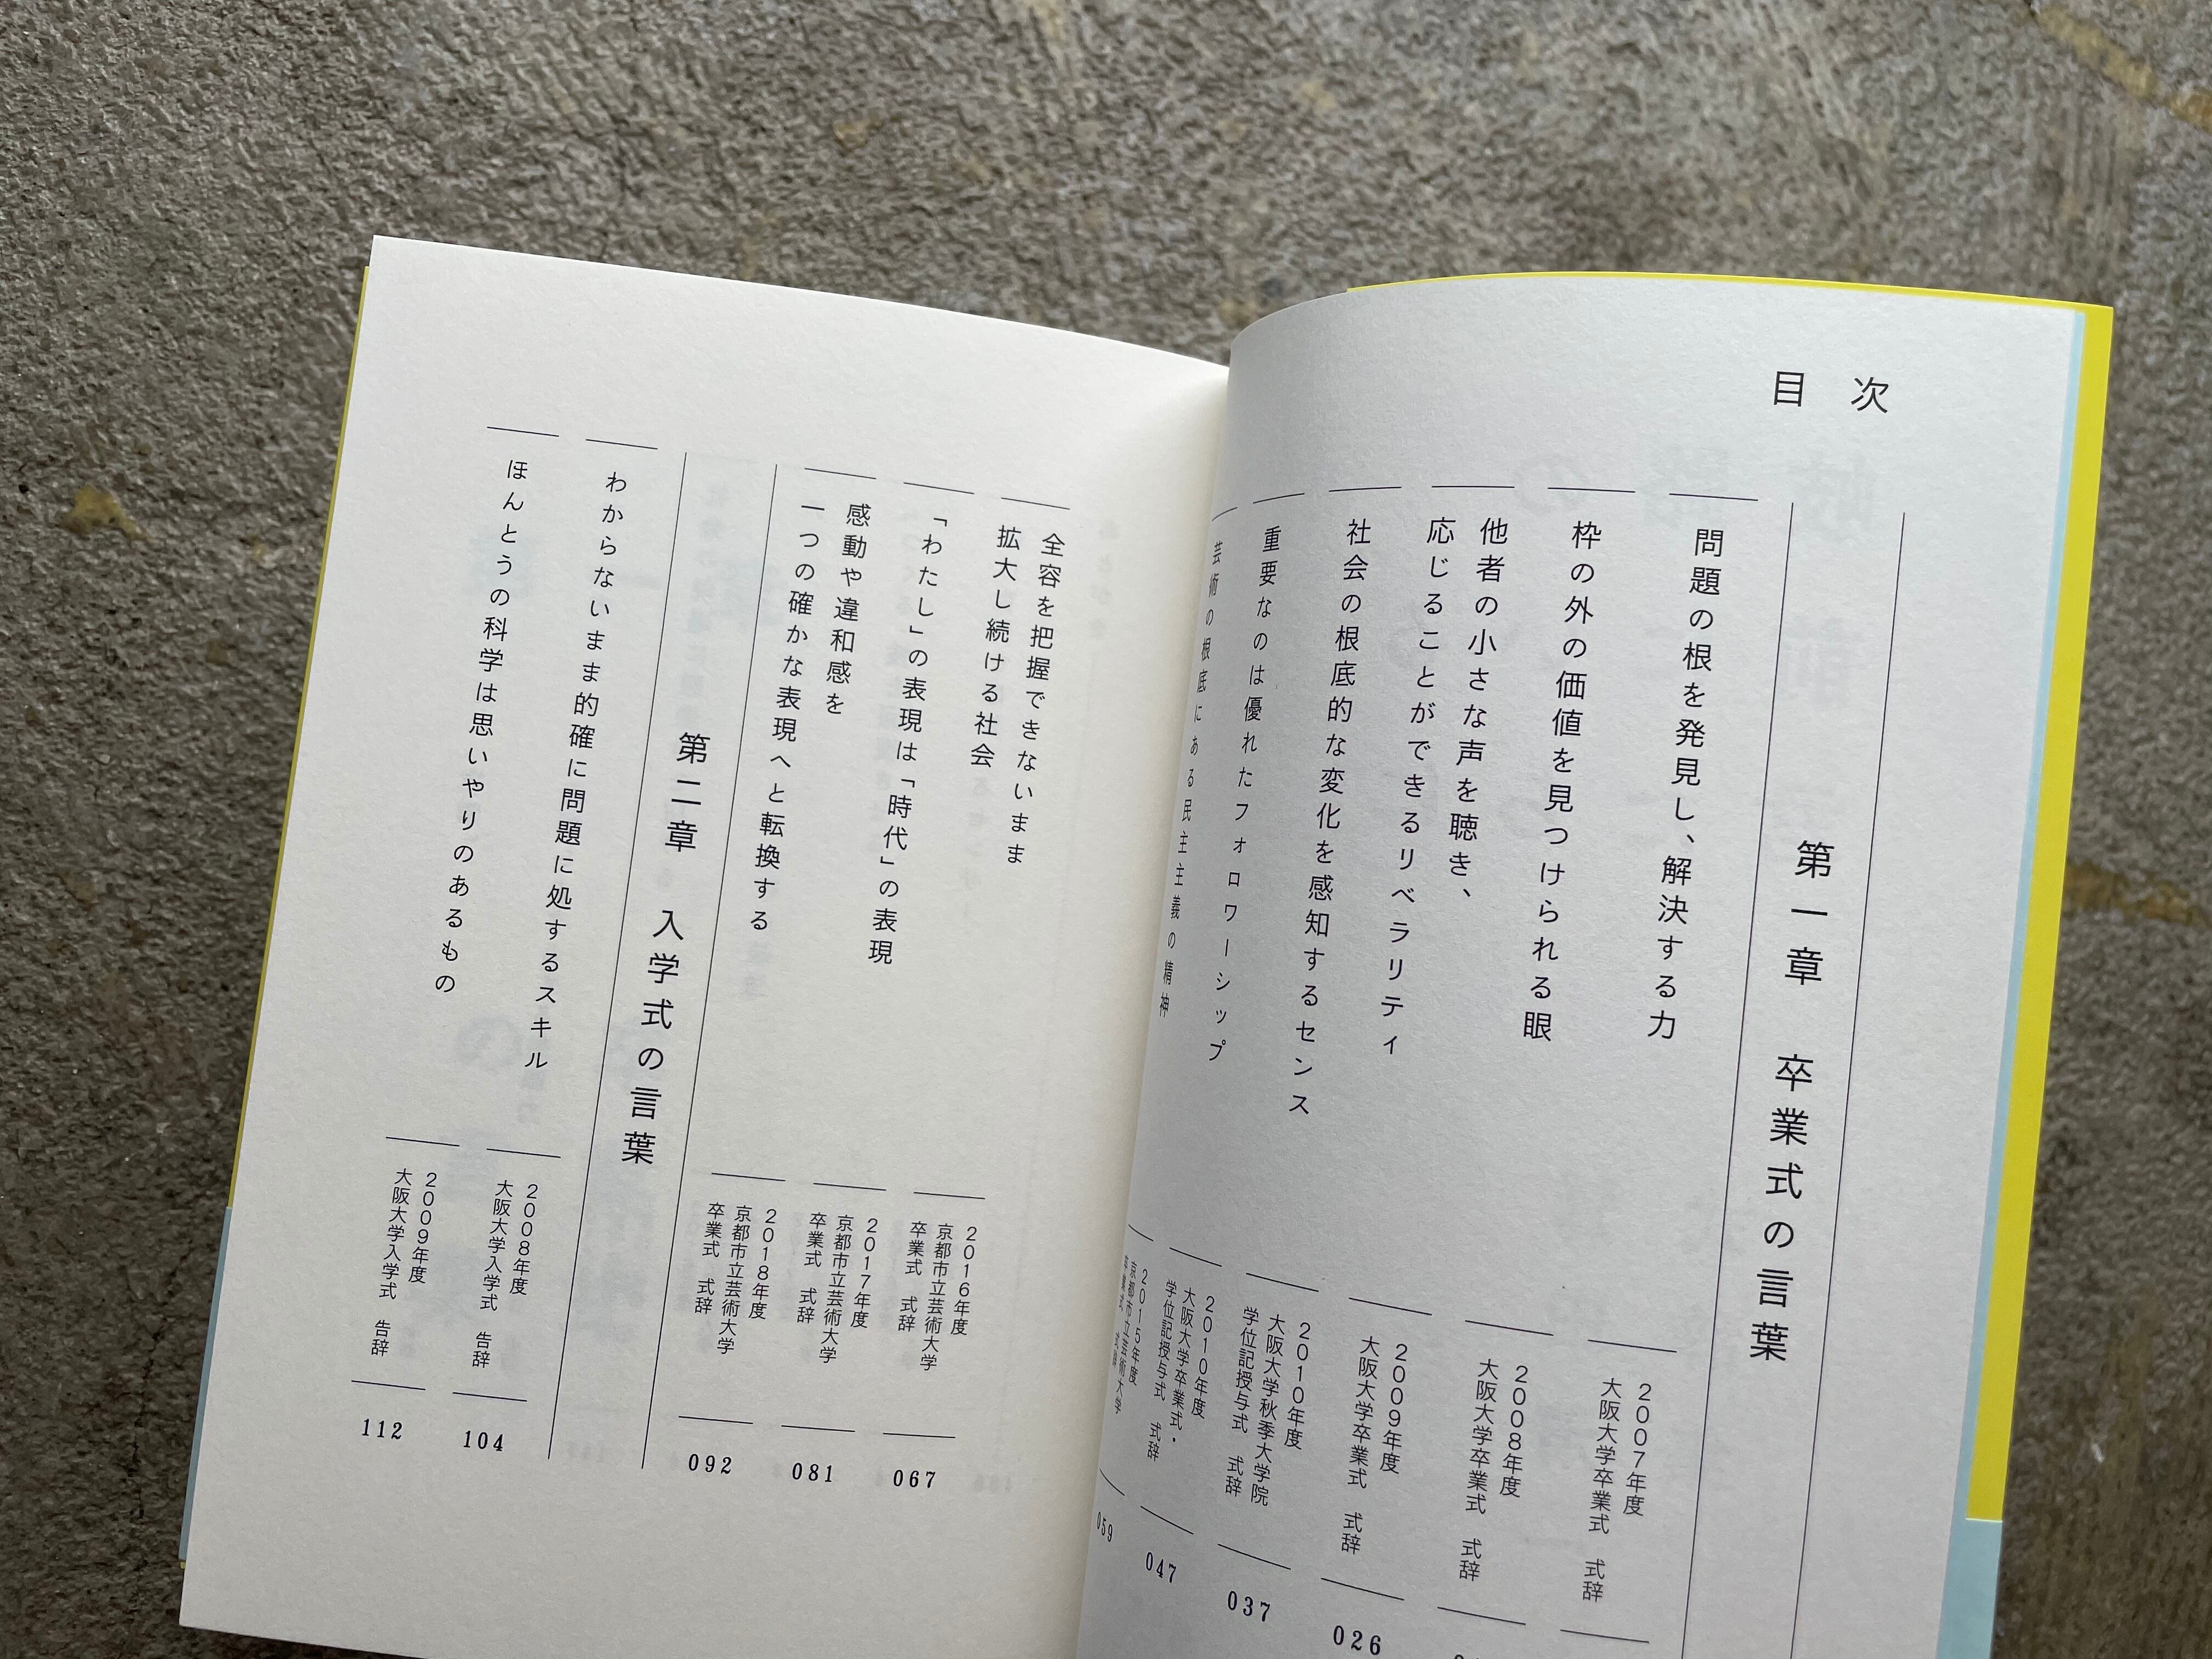 目次
第一章　卒業式の言葉
問題の根を発見し、解決する力
2007年度
大阪大学卒業式　式辞
枠の外の価値を見つけられる眼
2008年度
大阪大学卒業式　式辞
他者の小さな声を聴き、
応じることができるリベラリティ
2009年度
大阪大学卒業式　式辞
026
社会の根底的な変化を感知するセンス
2010年度
大阪大学秋季大学院
学位記授与式　式辞
037
重要なのは優れたフォロワーシップ
2010年度
大阪大学卒業式・
学位記授与式　式辞
047
芸術の根底にある民主主義の精神
2015年度
京都市立芸術大学
卒業式　式辞
059
全容を把握できないまま
拡大し続ける社会
2016年度
京都市立芸術大学
卒業式　式辞
067
「わたし」の表現は「時代」の表現
2017年度
京都市立芸術大学
卒業式　式辞
081
感動や違和感を
一つの確かな表現へと転換する
2018年度
京都市立芸術大学
卒業式　式辞
092
第二章　入学式の言葉
わからないまま的確に問題に処するスキル
2008年度
大阪大学入学式　告辞
104
ほんとうの科学は思いやりのあるもの
2009年度
大阪大学入学式　告辞
112